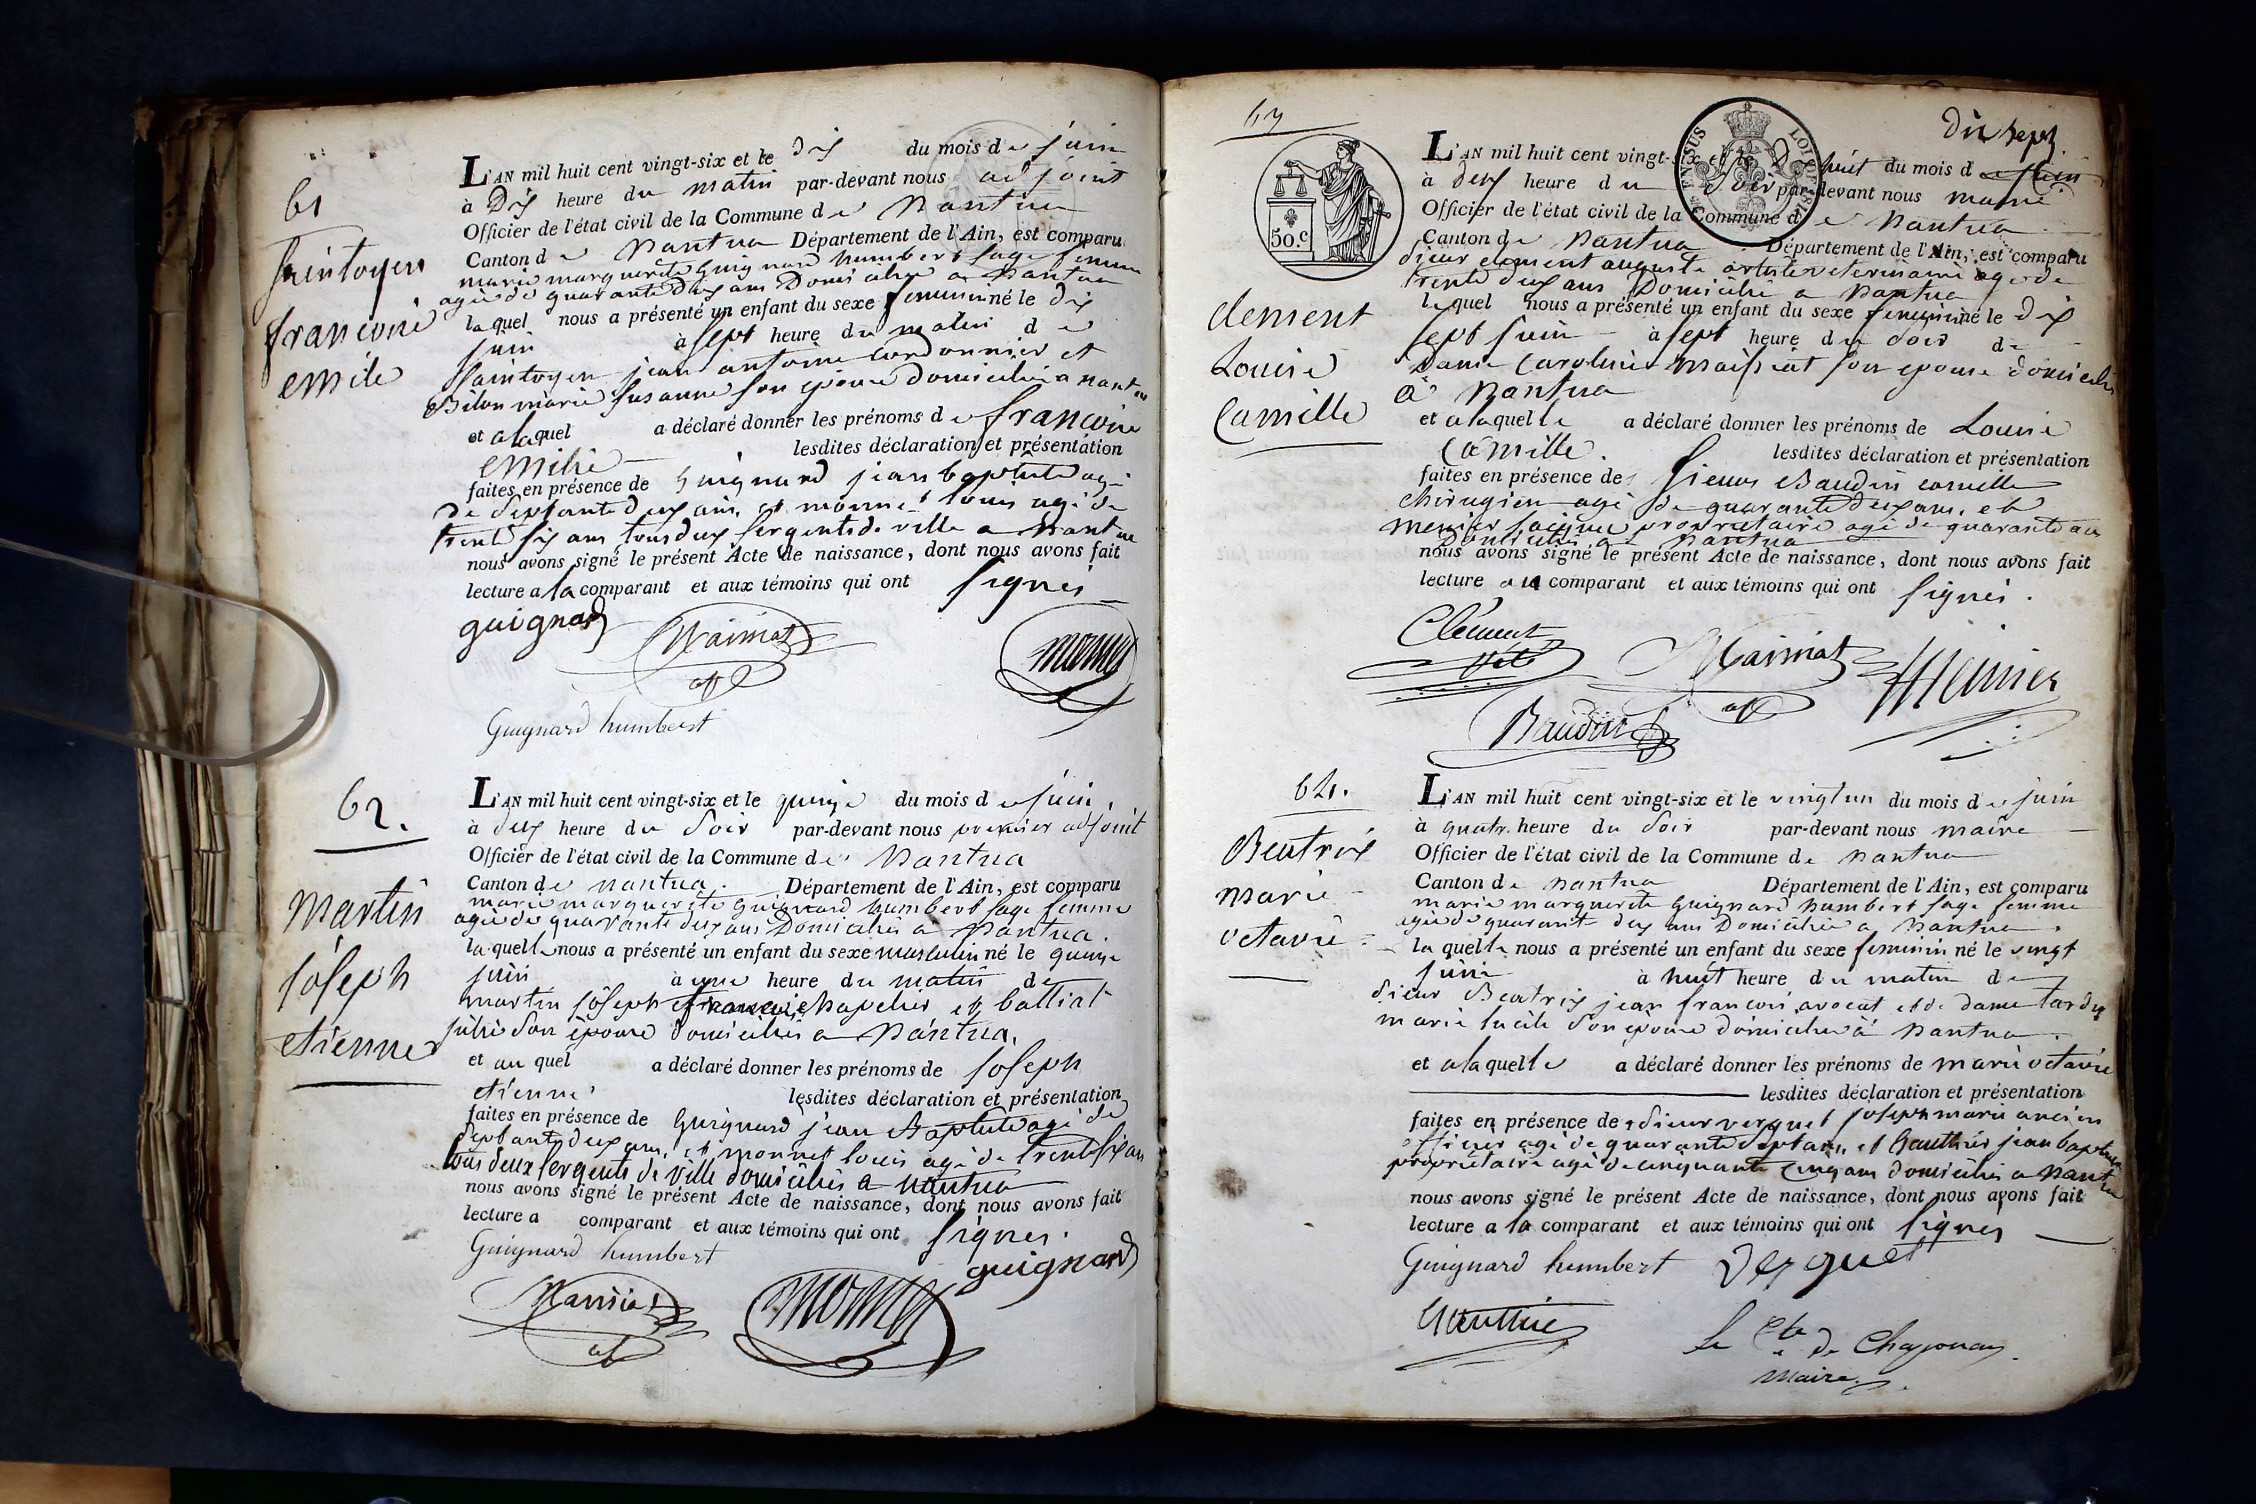 61
Saintoyen
francoise
emilie
L'AN mil huit cent vingt-six et le dix du mois de juin
à Dix heure du matin par-devant nous adjoint
Officier de l'état civil de la Commune de Nantua
Canton de Nantua Département de l'Ain, est comparu
marie marguerite Guignard humbert sage femme
agée de quarante deux ans Domiciliée a Nantua
laquel nous a présenté un enfant du sexe feminin né le dix
juin à sept heure du matin de
Saintoyen jean antoine cordonnier et
marie susanne son epouse domiciliés a nantua
et alaquel a déclaré donner les prénoms de francoise
emilie lesdites déclaration et présentation
faites en présence de Guignard jean baptiste agé
de septante deux ans, et monnet louis agé de
trente six ans tous deux sergents de ville a Nantua
nous avons signé le présent Acte de naissance, dont nous avons fait
lecture a la comparant et aux témoins qui ont signés
guignard
monnet
Guignard humbert
62.
Martin
joseph
etienne
L'AN mil huit cent vingt-six et le quinze du mois de juin,
à deux heure du soir par-devant nous premier adjoint
Officier de l'état civil de la Commune de Nantua
Canton de nantua. Département de l'Ain, est comparu
marie marguerite guignard humbert sage femme
agée de quarante deux ans Domiciliée a Nantua.
laquelle nous a présenté un enfant du sexe masculin né le quinze
juin à une heure du matin de
martin joseph francois chapelier et balliat
julie son épouse domiciliés a Nantua.
et au quel a déclaré donner les prénoms de joseph
etienne lesdites déclaration et présentation
faites en présence de Guignard jean Baptiste agé de
septante deux ans, et monnet louis agé de trente six ans
tous deux sergents de ville domiciliés a nantua
nous avons signé le présent Acte de naissance, dont nous avons fait
lecture a comparant et aux témoins qui ont signés.
Guignard humbert
guignard
monnet
dix sept
63
50.C
L'AN mil huit cent vingt-six et le Dix huit du mois de juin
à deux heure du soir par-devant nous maire
Officier de l'état civil de la Commune de Nantua
Canton de Nantua Département de l'Ain, est comparu
sieur clement auguste artiste veterinaire agé de
trente deux ans Domicilié a Nantua
lequel nous a présenté un enfant du sexe feminin né le dix
sept juin à sept heure du soir de
Dame Caroline Maissiat son epouse domiciliés
à Nantua
et alaquelle a déclaré donner les prénoms de Louise
Camille. lesdites déclaration et présentation
faites en présence de sieurs Baudin
chirugien agé de quarante deux ans, et
menier proprietaire agé de quarante ans
domiciliés a Nantua
nous avons signé le présent Acte de naissance, dont nous avons fait
lecture au comparant et aux témoins qui ont signés.
clement
Louise
Camille
Clément
Menier
Baudin
64.
Beatrix
marie
octavie
L'AN mil huit cent vingt-six et le vingt un du mois de juin
à quatre heure du soir par-devant nous maire
Officier de l'état civil de la Commune de Nantua
Canton de Nantua Département de l'Ain, est comparu
marie marguerite guignard humbert sage femme
agée de quarante deux ans Domiciliée a Nantua.
laquelle nous a présenté un enfant du sexe feminin né le vingt
juin à huit heure du matin de
sieur Beatrix jean francois avocat et de dame tardy
marie lucile son epouse domiciliés à Nantua.
et alaquelle a déclaré donner les prénoms de marie octavie
lesdites déclaration et présentation
faites en présence de sieur verguet joseph marie ancien
officier agé de quarante sept ans, et Gauthier jean baptiste
propriétaire agé de cinquante cinq ans domiciliés a Nantua
nous avons signé le présent Acte de naissance, dont nous avons fait
lecture a la comparant et aux témoins qui ont signés
Guignard humbert Verguet
Gauthier
le Cte de
Maire.